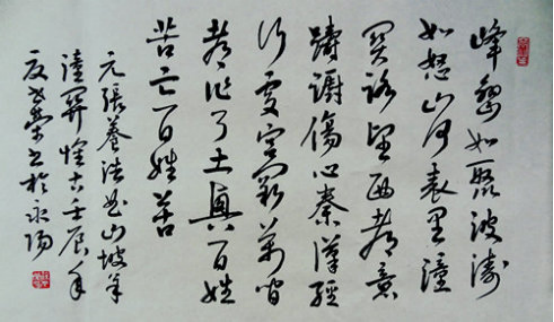 峰巒如聚波濤
如怒山河表里潼
關路望西都意
躊躕傷心秦漢經
行處宮闕萬間
都作了土興百姓
苦亡百姓苦
元張養浩曲山坡羊
潼關懷古壬辰年
書於永陽